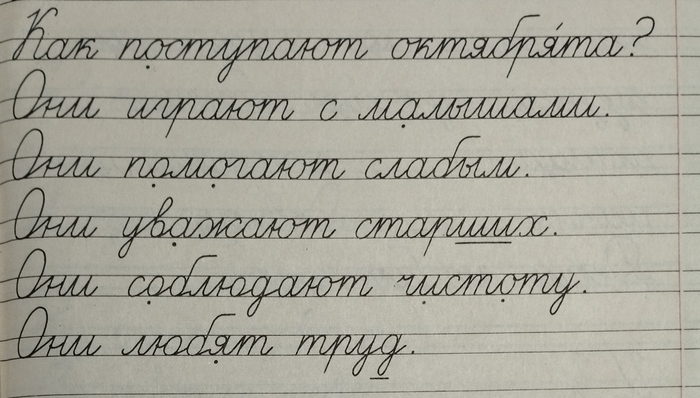 Как поступают октября́та?
Они играют с малышами.
Они помогают слабым.
Они уважают старших.
Они соблюдают чистоту.
Они любят труд.